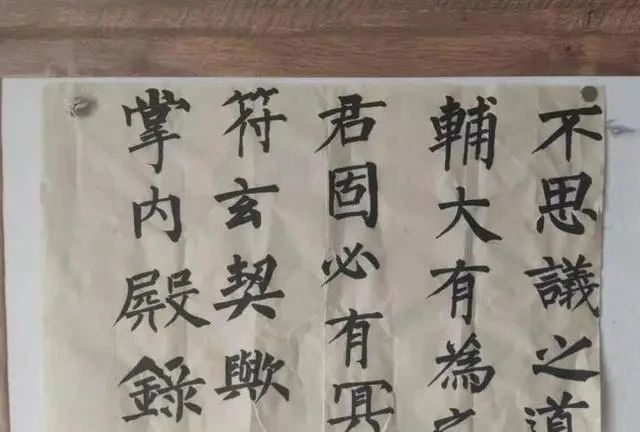 不思議之道
輔大有為之
君固必有冥
符玄契歟
掌内殿錄